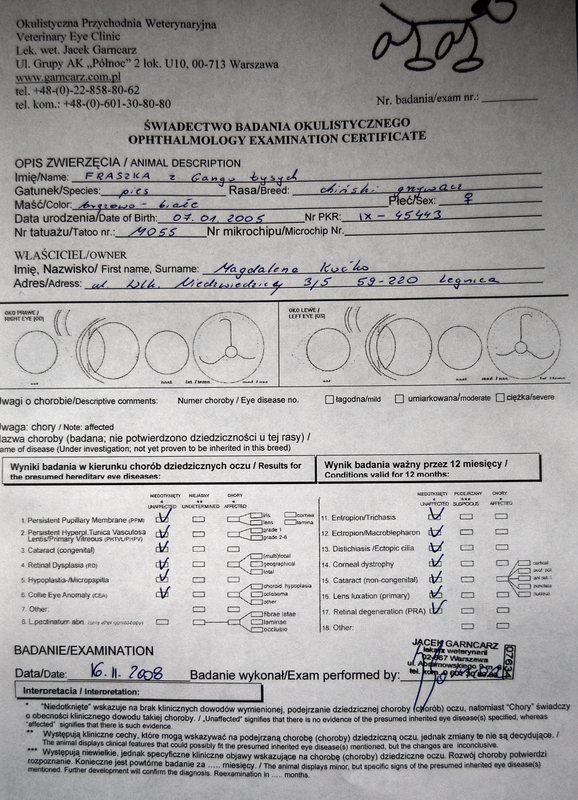 Okulistyczna Przychodnia Weterynaryjna
Veterinary Eye Clinic
Lek. wet. Jacek Garncarz
Ul. Grupy AK „Północ" 2 lok. U10, 00-713 Warszawa
www.garncarz.com.pl
tel. +48-(0)-22-858-80-62
tel. kom.: +48-(0)-601-30-80-80
Nr. badania/exam nr.:
ŚWIADECTWO BADANIA OKULISTYCZNEGO
OPHTHALMOLOGY EXAMINATION CERTIFICATE
OPIS ZWIERZĘCIA / ANIMAL DESCRIPTION
Imię/Name: FRASZKA z Gangu Łysych
Gatunek/Species: pies Rasa/Breed: chiński grzywacz
Maść/Color: brązowo - białe Płeć/Sex: ♀
Data urodzenia/Date of Birth: 07.01.2005 Nr PKR: IX - 45443
Nr tatuażu/Tatoo nr.: M055 Nr mikrochipu/Microchip Nr.
WŁAŚCICIEL/OWNER
Imię, Nazwisko/ First name, Surname: Magdalena
Adres/Adress: ul. Wlk. Niedźwiedzicy 3/5 59-220 Legnica
OKO PRAWE / RIGHT EYE (OD)
OKO LEWE / LEFT EYE (OS)
wagi o chorobie/Descriptive comments: Numer choroby / Eye disease no. łagodna/mild umiarkowana/moderate ciężka/severe
waga: chory / Note: affected
azwa choroby (badana; nie potwierdzono dziedziczności u tej rasy) /
ame of disease (Under investigation; not yet proven to be inherited in this breed)
Wyniki badania w kierunku chorób dziedzicznych oczu / Results for the presumed hereditary eye diseases:
Wynik badania ważny przez 12 miesięcy / Conditions valid for 12 months:
NIEDOTKNIĘTY * UNAFFECTED NIEJASNY ** UNDETERMINED CHORY * AFFECTED
NIEDOTKNIĘTY * UNAFFECTED PODEJRZANY *** SUSPICIOUS CHORY * AFFECTED
1. Persistent Pupillary Membrane (PPM) iris cornea lens lamina
2. Persistent Hyperpl.Tunica Vasculosa Lentis/Primary Vitreous (PHTVL/PHPV) grade 1 grade 2-6
3. Cataract (congenital)
4. Retinal Dysplasia (RD) (multi)focal geographical total
5. Hypoplastia-/Micropapilla
6. Collie Eye Anomaly (CEA) choroid. hypoplasia coloboma other
7. Other:
8. L.pectinatum abn. (only after gonioscopy) fibrae latae laminae occlusio
11. Entropion/Trichiasis
12. Ectropion/Macroblepharon
13. Distichiasis /Ectopic cilia
14. Corneal dystrophy
15. Cataract (non-congenital) cortical post. pol. ant. sut. l. punctata nucleus
16. Lens luxation (primary)
17. Retinal degeneration (PRA)
18. Other:
BADANIE/EXAMINATION
Data/Date: 16.11.2008 Badanie wykonał/Exam performed by:
JACEK GARNCARZ
lekarz weterynarii
02-967 Warszawa
07634
Interpretacja / Interpretation:
* "Niedotknięte" wskazuje na brak klinicznych dowodów wymienionej, podejrzanie dziedzicznej choroby (chorób) oczu, natomiast "Chory" świadczy
o obecności klinicznego dowodu takiej choroby. / „Unaffected" signifies that there is no evidence of the presumed inherited eye disease(s) specified, whereas
"affected" signifies that there is such evidence.
** Występują kliniczne cechy, które mogą wskazywać na podejrzaną chorobę (choroby) dziedziczną oczu, jednak zmiany te nie są decydujące. /
The animal displays clinical features that could possibly fit the presumed inherited eye disease(s) mentioned, but the changes are inconclusive.
*** Występują niewielkie, jednak specyficzne kliniczne objawy wskazujące na chorobę (choroby) dziedziczne oczu. Rozwój choroby potwierdzi
rozpoznanie. Konieczne jest powtórne badanie za ..... miesięcy. / The animal displays minor, but specific signs of the presumed inherited eye disease(s)
mentioned. Further development will confirm the diagnosis. Reexamination in ..... months.